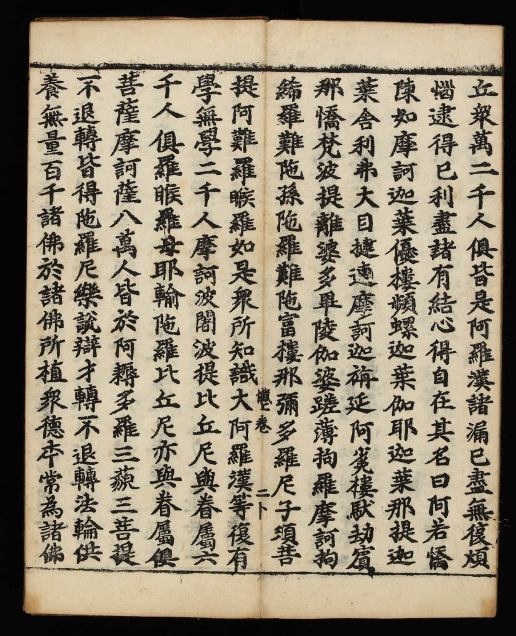 丘衆萬二千人俱皆是阿羅漢諸漏已盡無復煩
惱逮得已利盡諸有結心得自在其名曰阿若憍
陳如摩訶迦葉優樓頻螺迦葉伽耶迦葉那提迦
葉舍利弗大目揵連摩訶迦旃延阿㝹樓馱劫賓
那憍梵波提離婆多畢陵伽婆蹉薄拘羅摩訶拘
絺羅難陁孫陁羅難陁富樓那彌多羅尼子須菩
提阿難羅睺羅如是衆所知識大阿羅漢等復有
卷 二下
學無學二千人摩訶波闍波提比丘尼與眷屬六
千人俱羅睺羅母耶輸陁羅比丘尼亦與眷屬俱
菩薩摩訶薩八萬人皆於阿耨多羅三藐三菩提
不退轉皆得陁羅尼樂說辯才轉不退轉法輪供
養無量百千諸佛於諸佛所植衆德本常為諸佛